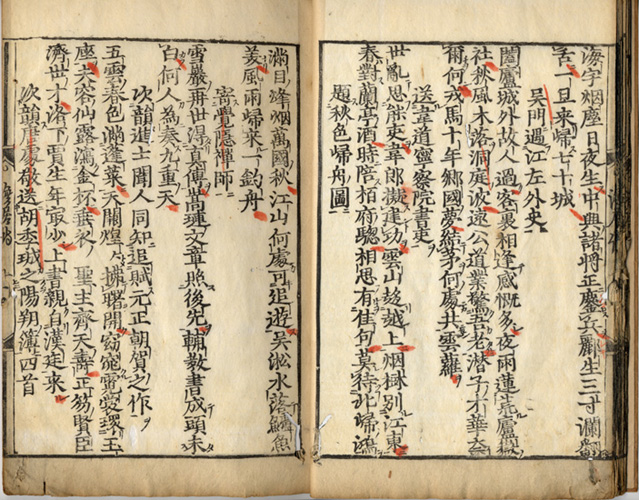 海宇烟塵日夜生中興諸將正鏖兵酈生三寸瀾
舌一旦来歸七十城
吳門遇江左外史
闔廬城外故人過客裏相逢感慨多夜雨蓮廬嶽
社秋風木落洞庭波遠公道業驚老潛子才華奈
爾何戎馬十年鄉國夢結茅何處共雲蘿
送韋道寧察院書吏
世亂思吏韋郎擬建功雲山越上烟樹別江東
春對蘭亭酒時陪栢府驄相思有佳句莫待北歸鴻
題秋色歸舟圖
滿目烽烟萬國秋江山何處可追遊吳淞水落鱸魚
美風雨歸来一釣舟
寄覺隱禪師
雪巖再世得真傳嵩璉文章照後先輔教書成頭未
白何人為奏九重天
次韻進士聞人同知追賦元正朝賀之作
五雲春色滿蓬萊天闕煌〻擁曙開窈窕宮鬟環玉
座夫容仙露滿金杯垂衣聖主齊天壽正笏賢臣
濟世才洛下賈生年㝡少上書親自漢廷来
次韻唐處敬送胡季珹之陽朔簿四首